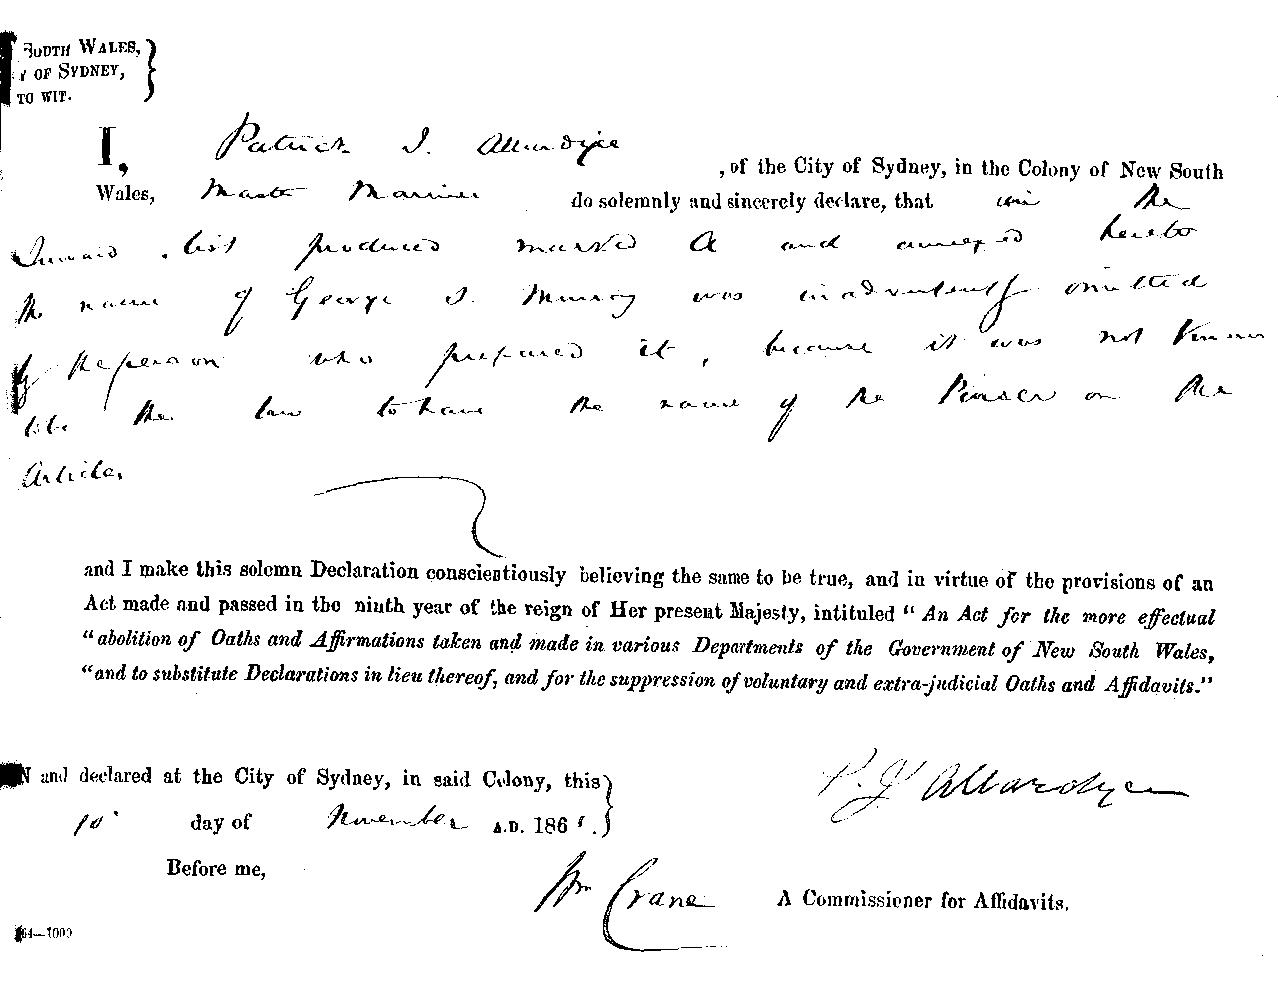 SOUTH WALES,
OF SYDNEY,
TO WIT.
I, Patrick J. Allardyce, of the City of Sydney, in the Colony of New South
Wales, Master Mariner do solemnly and sincerely declare, that in the
Inward list produced marked A and annexed hereto
the name of George S. Murray was inadvertently omitted
by the person who prepared it, because it was not known
to be the law to have the name of the Purser on the
Articles
and I make this solemn Declaration conscientiously believing the same to be true, and in virtue of the provisions of an
Act made and passed in the ninth year of the reign of Her present Majesty, intituled "An Act for the more effectual
"abolition of Oaths and Affirmations taken and made in various Departments of the Government of New South Wales,
"and to substitute Declarations in lieu thereof, and for the suppression of voluntary and extra-judicial Oaths and Affidavits."
N and declared at the City of Sydney, in said Colony, this
10 day of November A.D. 186
P. J. Allardyce
Before me,
Wm Crane A Commissioner for Affidavits.
64—1000